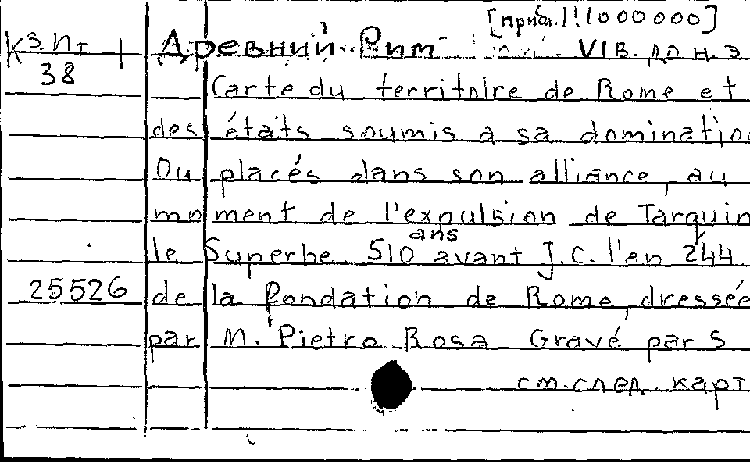 [прибл. 1:1000000]
Кз.Пг 1 Древний Рим VI в. до н.э
38
Carte du territoire de Rome et
des états soumis a sa domination
Ou placés dans son alliance, au
moment de l'expulsion de Tarquin
le Superbe 510 ans avant J.C. l'an 244
25526 de la Fondation de Rome, dressée
par M. Pietro Rosa Gravé par S
см. след. карт